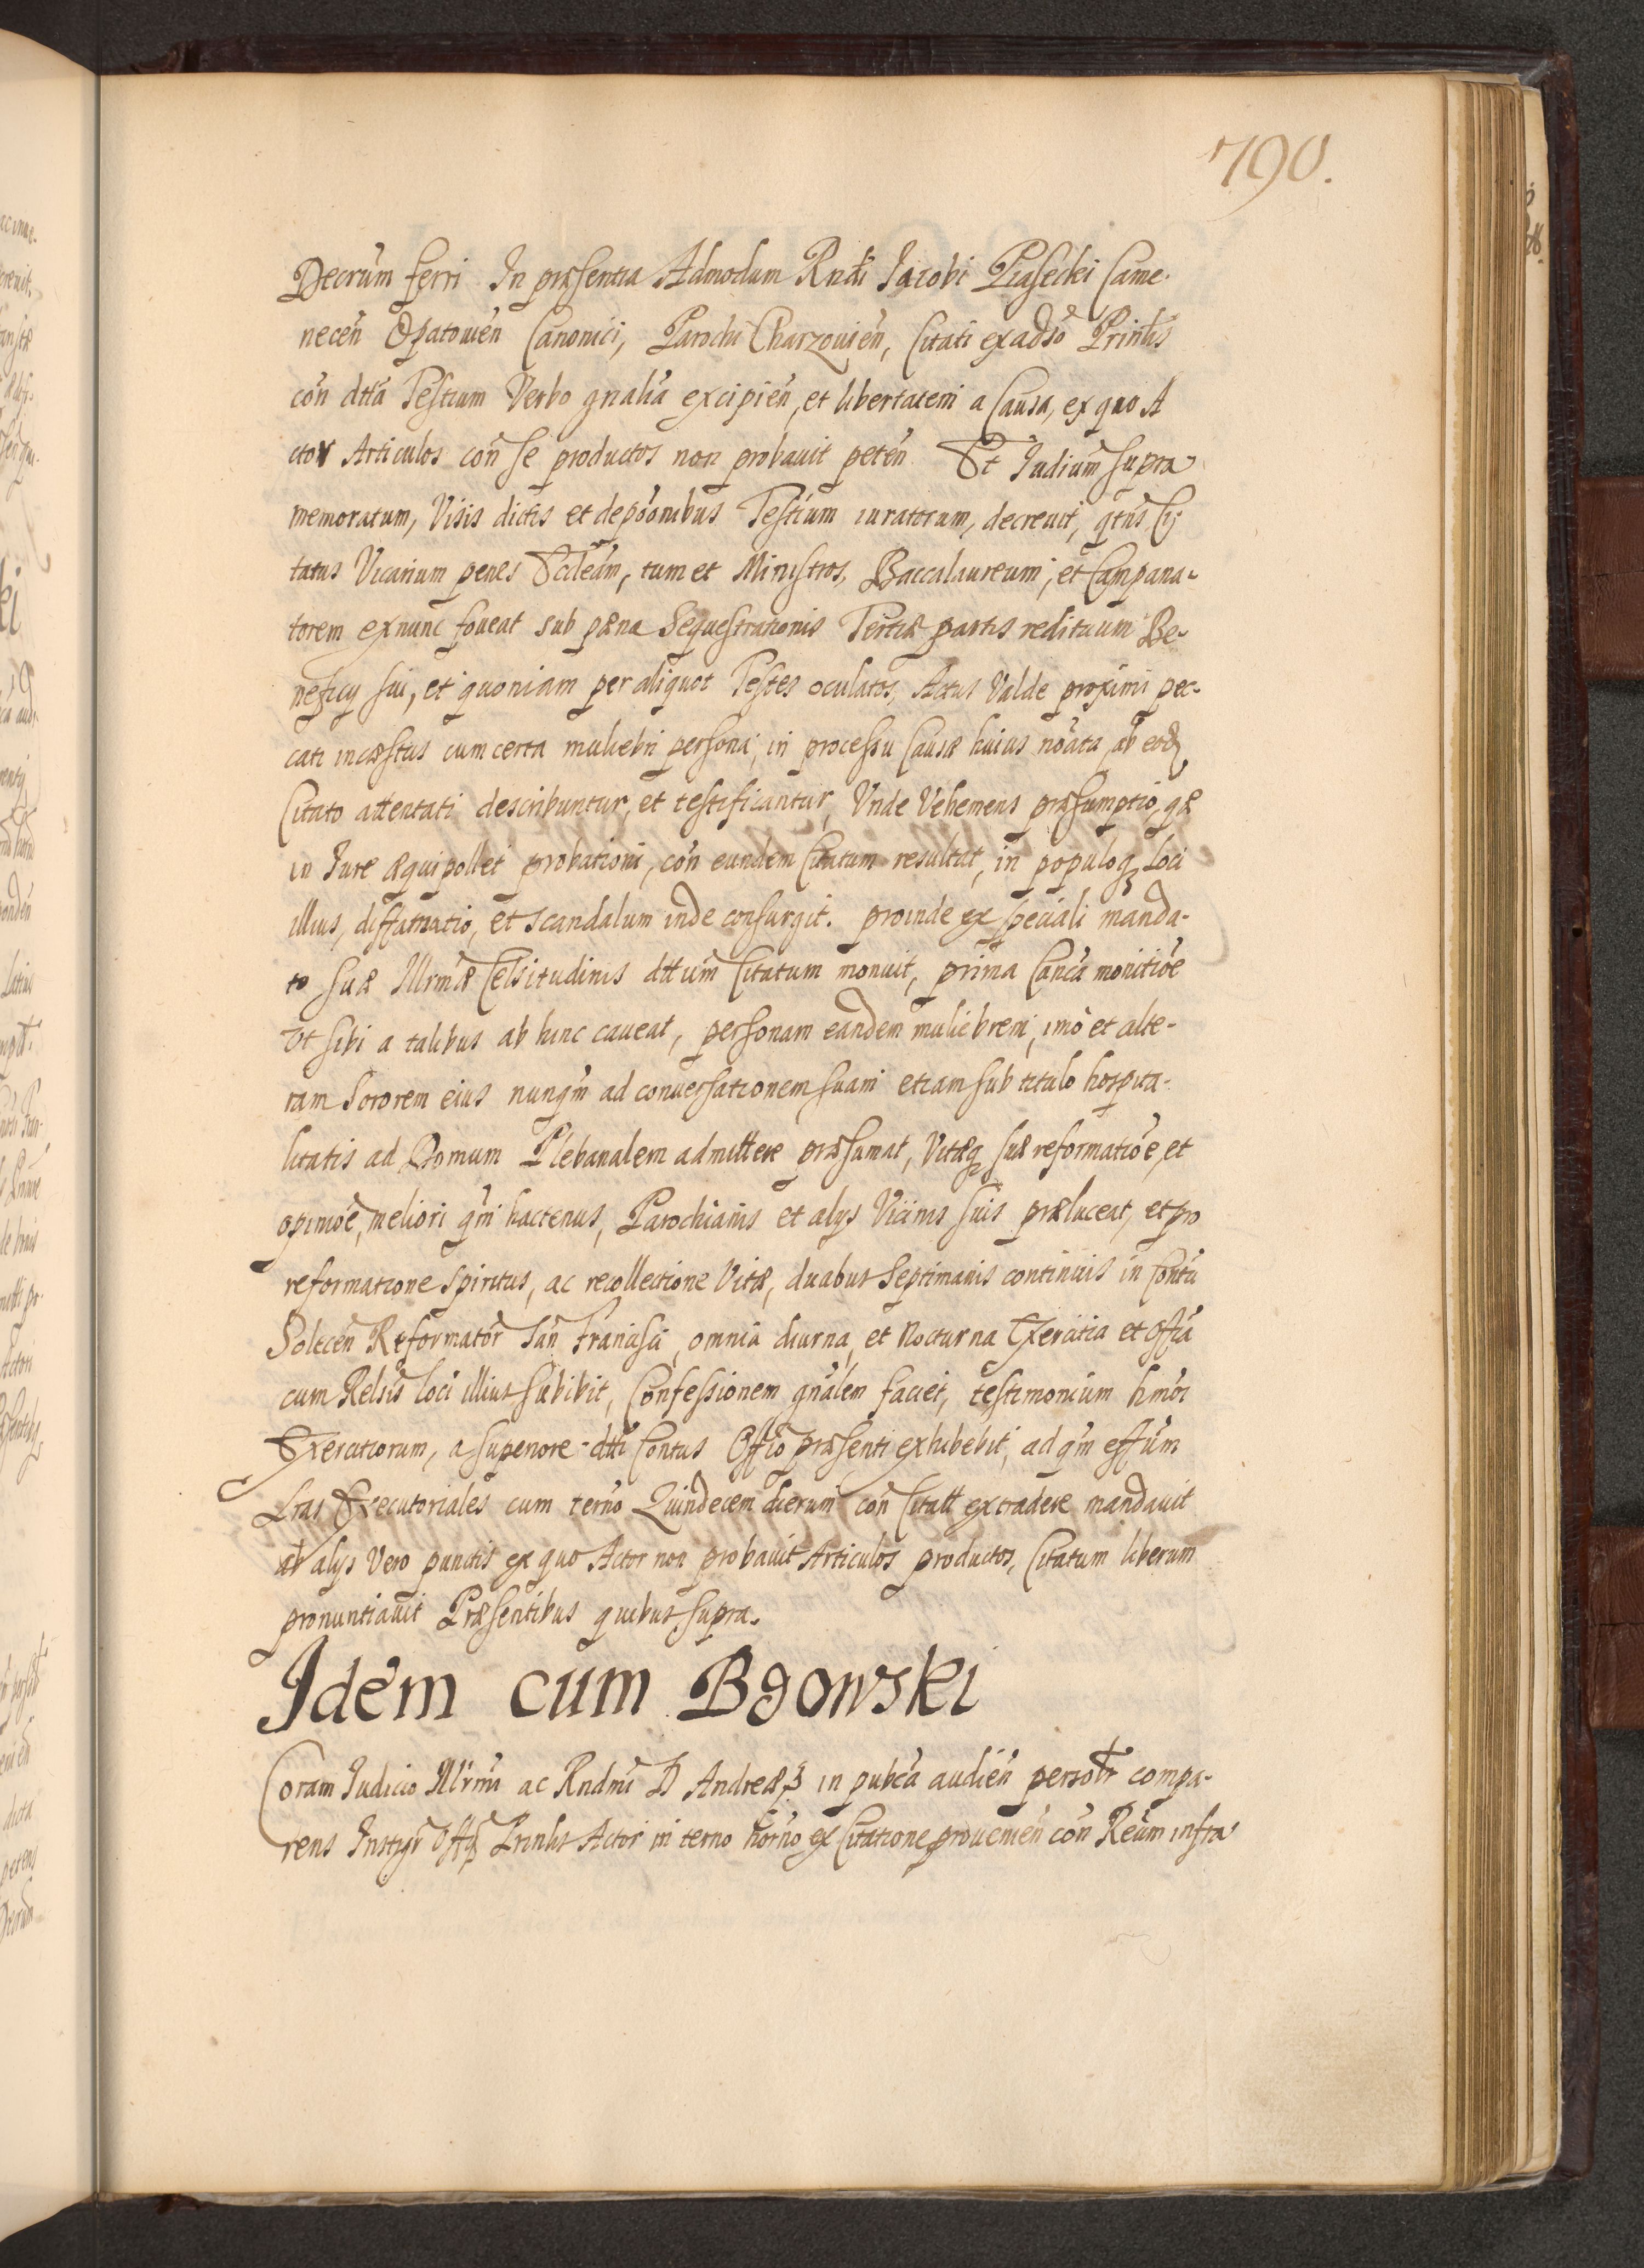 790.
Decrūm ferri In præsentia Admodum Rndi Iacobi Piasecki Came-
necen̄ Opatouien̄ Canonici, Parochi Charzouien̄, Citati ex adso Prin̄lis
con̄ dtta Testium Verbo gnalia excipien̄, et libertatem a Causa, ex quo A
ctor Articulos con̄ se productos non probauit peten̄ Et Iudiūm supra
memoratum, Visis dictis et depōonibus Testium iuratorum, decreuit, qtn̄s Ci
tatus Vicarium penes Eccleām, tum et Ministros, Baccalaureum, et Campana-
torem exnunc foueat sub pæna Sequestrationis Tertiæ partis redituum Be-
neficij sui, et quoniam per aliquot Testes oculatos, Actus Valde proximi pec-
cati incæstus cum certa muliebri persona, in processu Causæ huius noāta ab eod
Citato attentati describuntur, et testificantur, Vnde Vehemens præsumptio, qæ
in Iure æquipollet probationi, con̄ eundem Citatum resultat, in populoq Loci
illius, diffamatio, et scandalum inde consurgit. proinde ex speciali manda-
to suæ Illrmæ Celsitudinis dttum Citatum monuit, prima Canca monitiōe
Vt sibi a talibus ab hinc caueat, personam eandem muliebrem, imò et alte-
ram Sororem eius nunqm̄ ad conuersationem suam etiam sub titulo hospita-
litatis ad Domum Plebanalem admittere præsumat, Vitæq suæ reformatiōe, et
opiniōe, meliori qm̄ hactenus, Parochianis et alijs Vicinis suis præluceat, et pro
reformatione spiritus, ac recollectione Vitæ, duabus Septimanis continuis in Contu
Solecen̄ Reformator̄ San̄ Francisci, omnia diurna, et Nocturna Exercitia et Offia
cum Relsis loci illius subibit, Confessionem gnālem faciet, testimonium hmoi
Exercitiorum, a superiore dtti Contus Offio præsenti exhibebit, ad qm̄ effūm
Lras Executoriales cum terno Quindecem dierum con̄ Citatt extradere mandauit
ab alijs Vero punctis ex quo Actor non probauit Articulos productos, Citatum liberum
pronuntiauit Præsentibus quibus supra.
Idem cum Bgowski
Coram Iudicio Illrmi ac Rndmi D Andreæ, in pubca audien̄ persoltr compa-
rens Instigr Offij Prinlis Actor in terno horno ex Citatione prouenien̄ con̄ Reum infra